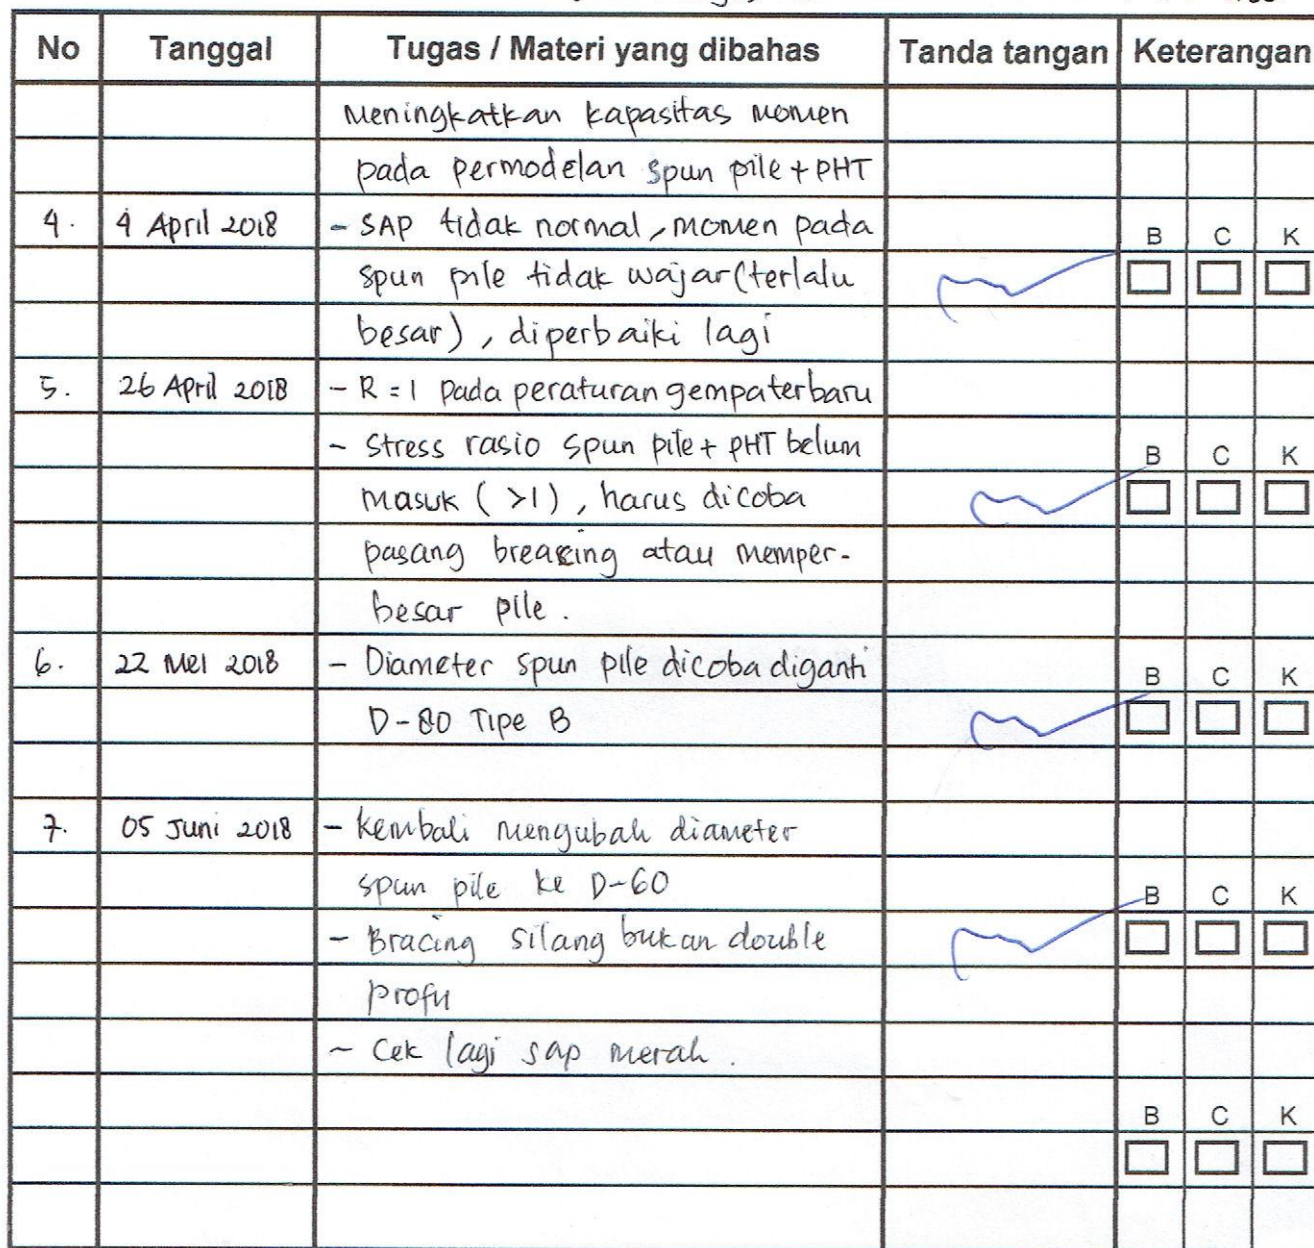 No Tanggal Tugas / Materi yang dibahas Tanda tangan Keterangan
Meningkatkan kapasitas momen
pada permodelan spun pile + PHT
4. 4 April 2018 - SAP tidak normal, momen pada
B C K
spun pile tidak wajar (terlalu
besar), diperbaiki lagi
5. 26 April 2018 - R = 1 pada peraturan gempa terbaru
- Stress rasio spun pile + PHT belum
B C K
masuk ( >1), harus dicoba
pasang breacing atau memper-
besar pile.
6. 22 Mei 2018 - Diameter spun pile dicoba diganti
B C K
D-80 Tipe B
7. 05 Juni 2018 - Kembali mengubah diameter
spun pile ke D-60
B C K
- Bracing silang bukan double
profil
- Cek lagi sap merah.
B C K